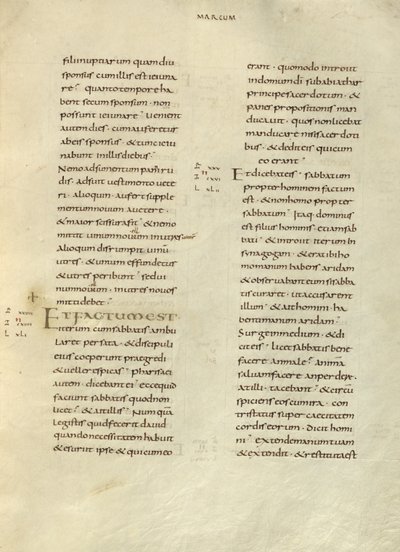 MARCUM
filii nuptiarum quamdiu
sponsus cum illis est ieiuna
re quanto tempore ha
bent secum sponsum · non
possunt ieiunare · Uenient
autem dies · cum auferetur
ab eis sponsus · & tunc ieiu
nabunt in illis diebus ·
Nemo adsumentum panni ru
dis · adsuit uestimento uete
ri · alioquin · aufert supple
mentum nouum a uetere ·
& maior scissura fit · & nemo
mittit uinum nouum in utres
Alioquin disrumpit uinum
utres · & uinum effundetur
& utres peribunt · sed ui
num nouum · in utres nouos
mitti debet ·
ET FACTUM EST ·
iterum cum sabbatis ambu
laret per sata · & discipuli
eius coeperunt praegredi
& uellere spicas · pharisaei
autem · dicebant ei · ecce quid
faciunt sabbatis quod non
licet · & ait illis · Numquam
legistis quid fecerit dauid
quando necessitatem habuit
& esurit ipse & qui cum eo
erant · quomodo introiit
in domum di sub abiathar
principe sacerdotum · &
panes propositionis man
ducauit · quos non licebat
manducare nisi sacerdoti
bus · & dedit eis qui cum
eo erant
Et dicebat eis · sabbatum
propter hominem factum
est · & non homo propter
sabbatum · Itaq· dominus
est filius hominis · etiam sab
bati · & introiit iterum in
synagogam · & erat ibi ho
mo manum habens aridam
& obseruabant eum si sabba
tis curaret · ut accusarent
illum · & ait homini · ha
benti manum aridam ·
Surge in medium · & di
cit eis · licet sabbatis bene
facere an male · anima
saluam facere an perdere ·
at illi · tacebant · & circu
spiciens eos cum ira · con
tristatus super caecitatem
cordis eorum · dicit homi
ni · extende manum tuam
& extendit · & restituta est